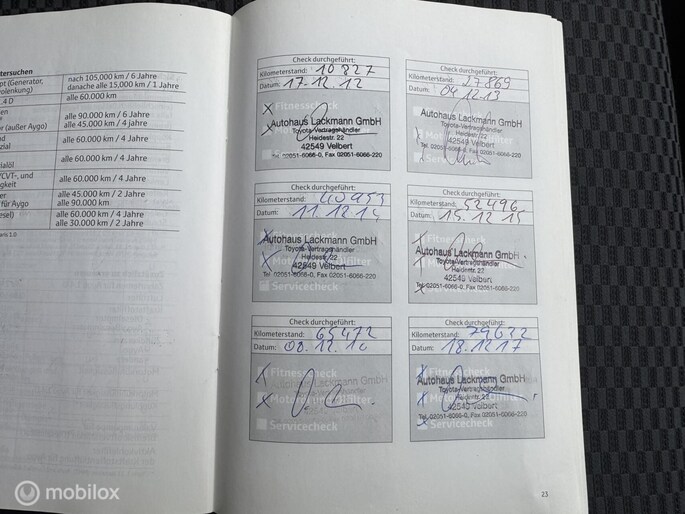 tersuchen
pt (Generator, nach 105.000 km / 6 Jahre
volenkung) danache alle 15.000 km / 1 Jahre
.4 D alle 60.000 km
en alle 90.000 km / 6 Jahre
r (außer Aygo) alle 45.000 km / 4 Jahre
nd alle 60.000 km / 4 Jahre
zial
alle 60.000 km / 4 Jahre
ialöl
/CVT-, und alle 60.000 km / 4 Jahre
gkeit
er alle 45.000 km / 2 Jahre
für Aygo alle 90.000 km
esel) alle 60.000 km / 4 Jahre
alle 30.000 km / 2 Jahre
Check durchgeführt:
Kilometerstand: 10 827
Datum: 17.12.12
Fitnesscheck
Autohaus Lackmann GmbH
Toyota-Vertragshändler
Heidestr. 22
42549 Velbert
Tel. 02051-6066-0, Fax 02051-6066-220
Check durchgeführt:
Kilometerstand: 27869
Datum: 04.12.13
Autohaus Lackmann GmbH
Toyota-Vertragshändler
Heidestr. 22
42549 Velbert
Tel. 02051-6066-0, Fax 02051-6066-220
Check durchgeführt:
Kilometerstand: 40953
Datum: 11.12.14
Autohaus Lackmann GmbH
Toyota-Vertragshändler
Heidestr. 22
42549 Velbert
Tel. 02051-6066-0, Fax 02051-6066-220
Servicecheck
Check durchgeführt:
Kilometerstand: 52496
Datum: 15.12.15
Autohaus Lackmann GmbH
Toyota-Vertragshändler
Heidestr. 22
42549 Velbert
Tel. 02051-6066-0, Fax 02051-6066-220
Servicecheck
Check durchgeführt:
Kilometerstand: 65472
Datum: 08.12.16
Fitnesscheck
Servicecheck
Check durchgeführt:
Kilometerstand: 79622
Datum: 18.12.17
Fitnesscheck
Autohaus Lackmann GmbH
Toyota-Vertragshändler
Heidestr. 22
42549 Velbert
Tel. 02051-6066-0, Fax 02051-6066-220
Servicecheck
23
mobilox